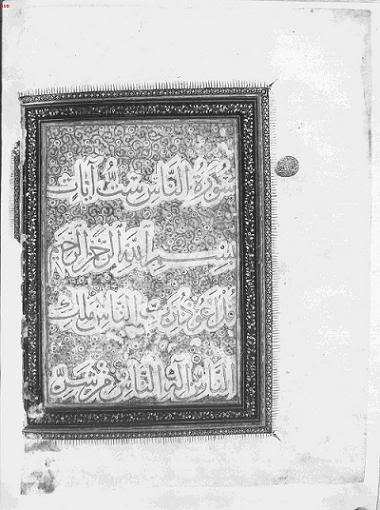 سورة الناس ست آيات
بسم الله الرحمن الرحيم
قل أعوذ برب الناس ملك
الناس إله الناس من شر